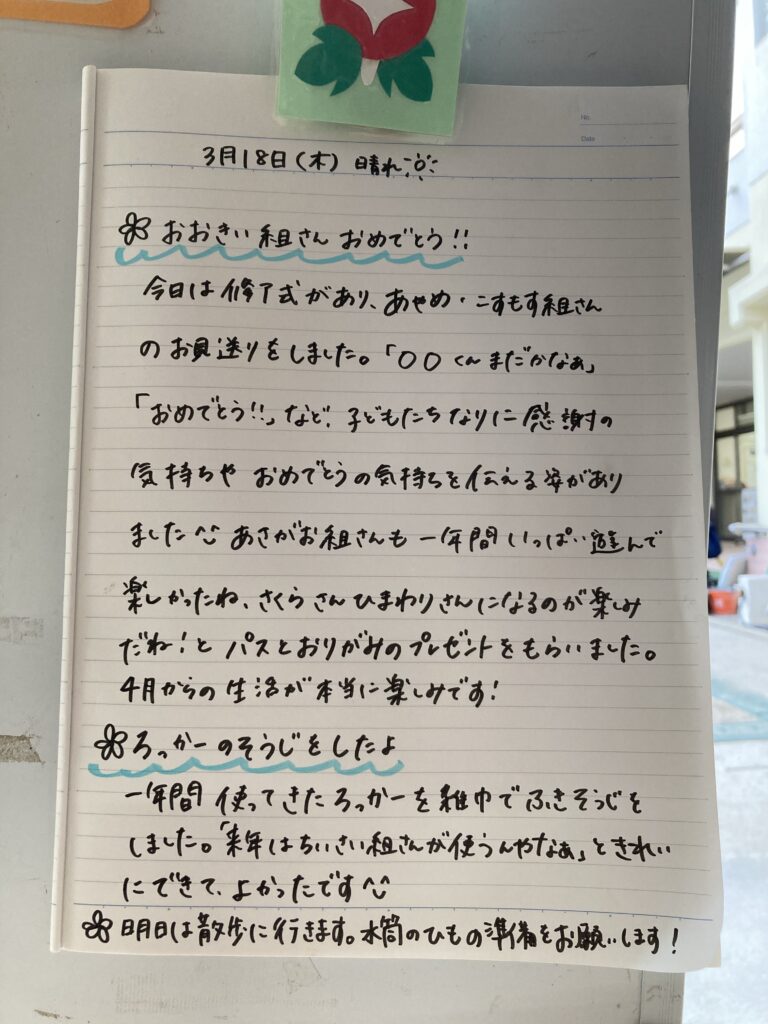 No.
Date
3月18日(木) 晴れ
おおきい組さん おめでとう!!
今日は修了式があり、あやめ・こすもす組さん
のお見送りをしました。「〇〇くんまだかなぁ」
「おめでとう!!」など、子どもたちなりに感謝の
気持ちや おめでとうの気持ちを伝える姿があり
ました あさがお組さんも 一年間いっぱい遊んで
楽しかったね、さくらさんひまわりさんになるのが楽しみ
だね!と パスとおりがみのプレゼントをもらいました。
4月からの生活が本当に楽しみです!
ろっかーのそうじをしたよ
一年間使ってきたろっかーを雑巾でふきそうじを
しました。「来年はちいさい組さんが使うんやなぁ」ときれい
にできて、よかったです
明日は散歩に行きます。水筒のひもの準備をお願いします!